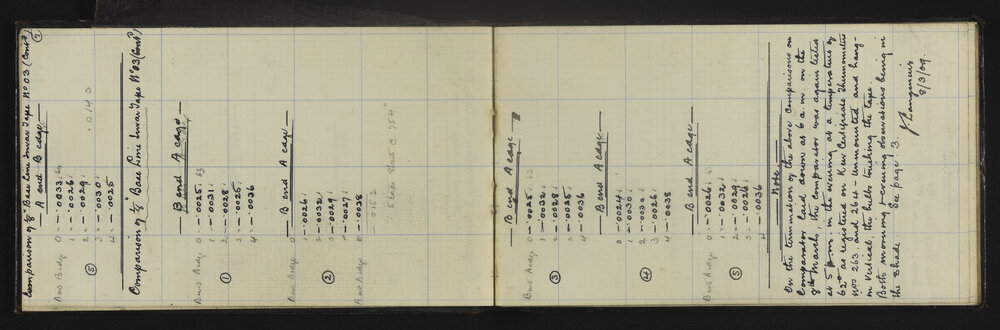 Comparison of 1/8" Base Line Invar Tape No 03 (Contd)
7
A end B edge
0 = .0033
1 = .0026
2 = .0029
3 = .0030
4 = .0025
.0143
5
Comparison of 1/8" Base Line Invar Tape No 03 (Contd)
B end A edge
0 = .0025
1 = .0031
2 = .0028
3 = .0025
4 = .0036
1
B end A edge
0 = .0026
1 = .0032
2 = .0029
3 = .0027
4 = .0038
.0152
2
B end A edge
0 = .0025
1 = .0032
2 = .0028
3 = .0025
4 = .0036
3
B end A edge
0 = .0024
1 = .0030
2 = .0030
3 = .0026
4 = .0038
4
B end A edge
0 = .0026
1 = .0032
2 = .0029
3 = .0026
4 = .0036
5
Note
On the termination of the above comparisons on
Comparator laid down at 6 a.m. on the
8th March, the Comparator was again tested
at 5 p.m. in the evening at a temperature of
62° as registered on Kew Certificate Thermometers
Nos 263 and 264 - unmounted and hang-
-ing vertical the bulbs touching the tape.
Both morning & evening observations being in
the shade. See page 3.
8/3/09.